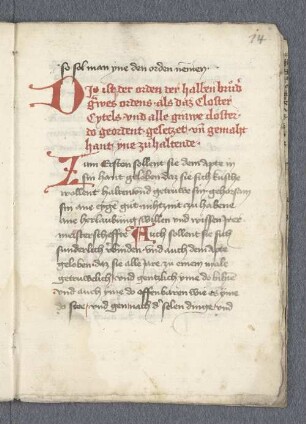 14
so sol man yne den orden nemen
Dis ist der orden der halben brud
grawes ordens als daz Closter
Cytels vnd alle grawe closter
do geordent gesetzet vn gemaht
hant yne zu haltende
Zum Ersten sollent sie dem Apte in
sin hant geloben daz sie sich kusche
wollent halten vnd getruwe sin gehorsam
sin ane eyge gut nihtznit zu habene
ane herlaubung willen vnd wissen irer
meisterscheffte Auch sollent sie sich
sunderlich vbinden vnd auch dem Apte
geloben daz sie alle jare zu einem male
getruwelich vnd gentzlich yme do bihte
vnd auch yme do offenbaren wie es yme
stee vnd gemach d selen dinge vnd